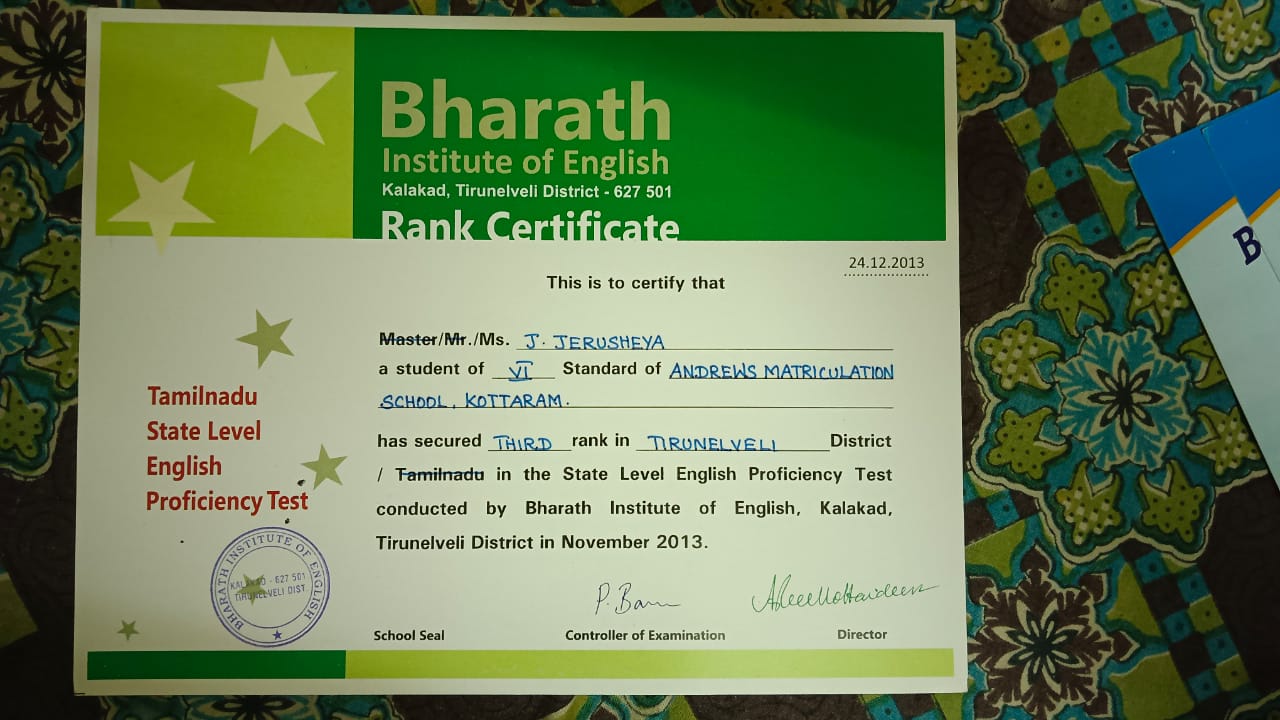 Bharath
Institute of English
Kalakad, Tirunelveli District - 627 501
Rank Certificate
24.12.2013
This is to certify that
Master/Mr./Ms. J. JERUSHEYA
a student of VI Standard of ANDREWS MATRICULATION
SCHOOL, KOTTARAM.
has secured THIRD rank in TIRUNELVELI District
/ Tamilnadu in the State Level English Proficiency Test
conducted by Bharath Institute of English, Kalakad,
Tirunelveli District in November 2013.
Tamilnadu
State Level
English
Proficiency Test
BHARATH INSTITUTE OF ENGLISH
KALAKAD - 627 501
TIRUNELVELI DIST.
P. Ban
School Seal
Controller of Examination
Director
B